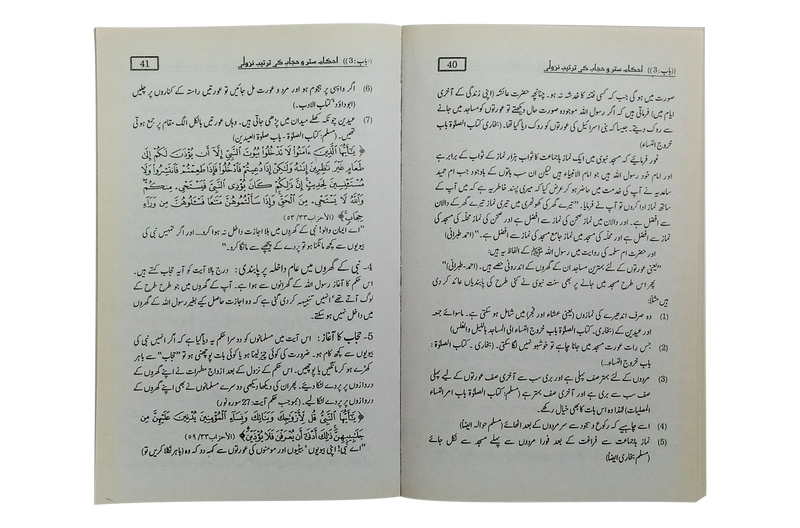 ((باب : 3)) احکام ستر و حجاب کی ترتیب نزولی 40
صورت میں ہو گی جب کہ کسی فتنہ کا خدشہ نہ ہو۔ چنانچہ حضرت عائشہ (اپنی زندگی کے آخری
ایام میں) فرماتی ہیں کہ اگر رسول اللہ موجودہ صورت حال دیکھتے تو عورتوں کو مساجد میں جانے
سے روک دیتے۔ جیسا کہ بنی اسرائیل کی عورتوں کو روک دیا گیا تھا۔ (بخاری کتاب الصلوٰۃ باب خروج
النساء)
غور فرمائیے کہ مسجد نبوی میں ایک نماز باجماعت کا ثواب ہزار نماز کے ثواب کے برابر ہے
اور امام خود رسول اللہ ہیں جو امام الانبیاء ہیں لیکن ان سب باتوں کے باوجود جب ام حمید
ساعدیہ نے آپ کی خدمت میں حاضر ہو کر عرض کیا کہ میری پسند خاطر یہ ہے کہ میں آپ کے
ساتھ نماز ادا کروں تو آپ نے فرمایا۔ "تیرے گھر کی کوٹھری میں تیری نماز تیرے گھر کے دالان
سے افضل ہے۔ اور دالان میں نماز صحن کی نماز سے افضل ہے اور صحن کی نماز محلہ کی مسجد کی
نماز سے افضل ہے اور محلہ کی مسجد میں نماز جامع مسجد کی نماز سے افضل ہے۔" (احمد طبرانی)
اور حضرت ام سلمہ کی روایت میں رسول اللہ ﷺ کے الفاظ یہ ہیں:
"یعنی عورتوں کے لئے بہترین مساجد ان کے گھروں کے اندرونی حصے ہیں۔ (احمد۔ طبرانی)"
پھر اس طرح مسجد میں جانے پر بھی سنت نبوی نے کئی طرح کی پابندیاں عائد کر دی
ہیں مثلاً:
(1) وہ صرف اندھیرے کی نمازوں (یعنی عشاء اور فجر) میں شامل ہو سکتی ہے۔ ماسوائے جمعہ
اور عیدین کے (بخاری۔ کتاب الصلوٰۃ باب خروج النساء الی المساجد باللیل والغلس)
(2) جس رات عورت مسجد میں جانا چاہے تو خوشبو نہیں لگا سکتی۔ (بخاری۔ کتاب الصلوٰۃ:
باب خروج النساء۔۔۔)
(3) مردوں کے لئے بہتر صف پہلی ہے اور بری سب سے آخری صف عورتوں کے لیے پہلی
صف سب سے بری ہے اور آخری صف بہتر ہے (مسلم کتاب الصلوٰۃ باب امر النساء
المصلیات) لہٰذا وہ اس بات کا بھی خیال رکھے۔
(4) اسے چاہیے کہ رکوع و سجود سے سر مردوں کے بعد اٹھائے (مسلم حوالہ ایضاً)
(5) نماز باجماعت سے فراغت کے بعد فوراً مردوں سے پہلے مسجد سے نکل جائے
(مسلم بخاری ایضاً)
((باب : 3)) احکام ستر و حجاب کی ترتیب نزولی 41
(6) اگر واپسی پر ہجوم ہو اور مرد و عورت مل جائیں تو عورتیں راستہ کے کناروں پر چلیں
(ابوداؤد کتاب الادب۔)
(7) عیدین چونکہ کھلے میدان میں پڑھی جاتی ہیں۔ وہاں عورتیں بالکل الگ مقام پر جمع ہوتی
تھیں۔ (مسلم کتاب الصلوٰۃ۔ باب صلوٰۃ العیدین)
﴿يَٰٓأَيُّهَا ٱلَّذِينَ ءَامَنُوا۟ لَا تَدْخُلُوا۟ بُيُوتَ ٱلنَّبِىِّ إِلَّآ أَن يُؤْذَنَ لَكُمْ إِلَىٰ
طَعَامٍ غَيْرَ نَٰظِرِينَ إِنَىٰهُ وَلَٰكِنْ إِذَا دُعِيتُمْ فَٱدْخُلُوا۟ فَإِذَا طَعِمْتُمْ فَٱنتَشِرُوا۟ وَلَا
مُسْتَـْٔنِسِينَ لِحَدِيثٍ ۚ إِنَّ ذَٰلِكُمْ كَانَ يُؤْذِى ٱلنَّبِىَّ فَيَسْتَحْىِۦ مِنكُمْ ۖ
وَٱللَّهُ لَا يَسْتَحْىِۦ مِنَ ٱلْحَقِّ ۚ وَإِذَا سَأَلْتُمُوهُنَّ مَتَٰعًا فَسْـَٔلُوهُنَّ مِن وَرَآءِ
حِجَابٍ﴾ (الأحزاب ۳۳/ ۵۳)
"اے ایمان والو! نبی کے گھروں میں بلا اجازت داخل نہ ہوا کرو۔۔۔ اور اگر تمہیں نبی کی
بیویوں سے کچھ مانگنا ہو تو پردے کے پیچھے سے مانگا کرو۔"
4- نبی کے گھروں میں عام داخلہ پر پابندی : درج بالا آیت کو آیہ حجاب کہتے ہیں۔
اس حکم کا آغاز رسول اللہ کے گھرانوں سے ہوا ہے۔ آپ کے گھروں میں جو طرح طرح کے
لوگ آتے تھے انہیں تنبیہہ کر دی گئی ہے کہ وہ اجازت حاصل کیے بغیر رسول اللہ کے گھروں
میں داخل نہیں ہو سکتے۔
5- حجاب کا آغاز: اس آیت میں مسلمانوں کو دوسرا حکم یہ دیا گیا ہے کہ اگر انہیں نبی کی
بیویوں سے کچھ کام ہو۔ ضرورت کی کوئی چیز لینا ہو یا کوئی بات پوچھنی ہو تو "حجاب" سے باہر
کھڑے ہو کر مانگیں یا پوچھیں۔ اس حکم کے نزول کے بعد ازواج مطہرات نے اپنے گھروں کے
دروازوں پر پردے لٹکا دیئے۔ پھر ان کی دیکھا دیکھی دوسرے مسلمانوں نے بھی اپنے گھروں کے
دروازوں پر پردے لٹکا لیے۔ (بموجب حکم آیت: 27 سورہ نور)
﴿يَٰٓأَيُّهَا ٱلنَّبِىُّ قُل لِّأَزْوَٰجِكَ وَبَنَاتِكَ وَنِسَآءِ ٱلْمُؤْمِنِينَ يُدْنِينَ عَلَيْهِنَّ مِن
جَلَٰبِيبِهِنَّ ۚ ذَٰلِكَ أَدْنَىٰٓ أَن يُعْرَفْنَ فَلَا يُؤْذَيْنَ﴾ (الأحزاب ۳۳/ ۵۹)
"اے نبی! اپنی بیویوں' بیٹیوں اور مومنوں کی عورتوں سے کہہ دو کہ وہ (باہر نکلا کریں تو)